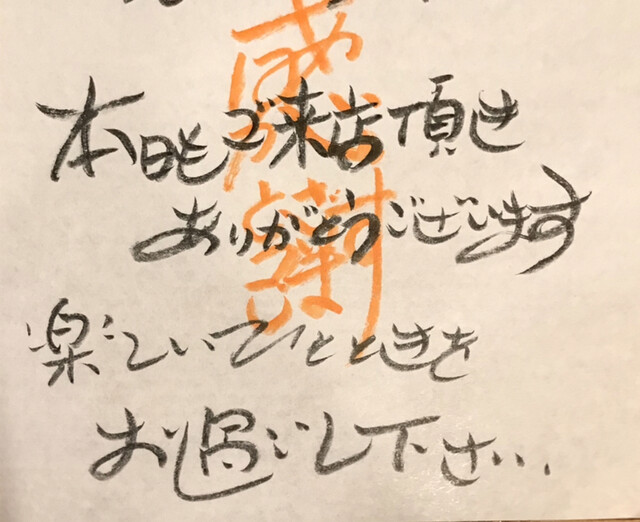 感謝
本日もご来店頂き
ありがとうございます
楽しいひとときを
お過ごし下さい。